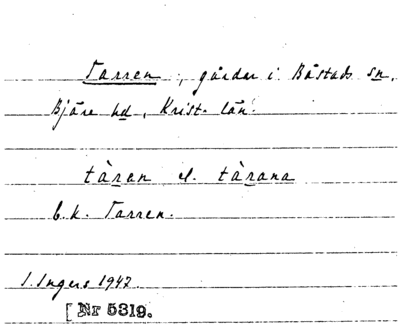 Tarren, gårdar i Båstads sn,
Bjäre hd, Krist. län.
tàran el. tàrana
b.k. Tarren.
I. Ingers 1942
[Nr 5319.